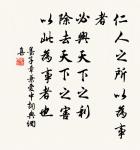 仁人之所以為事
者
必興天下之利
除去天下之害
以此為事者也
墨子章兼愛中詞典網